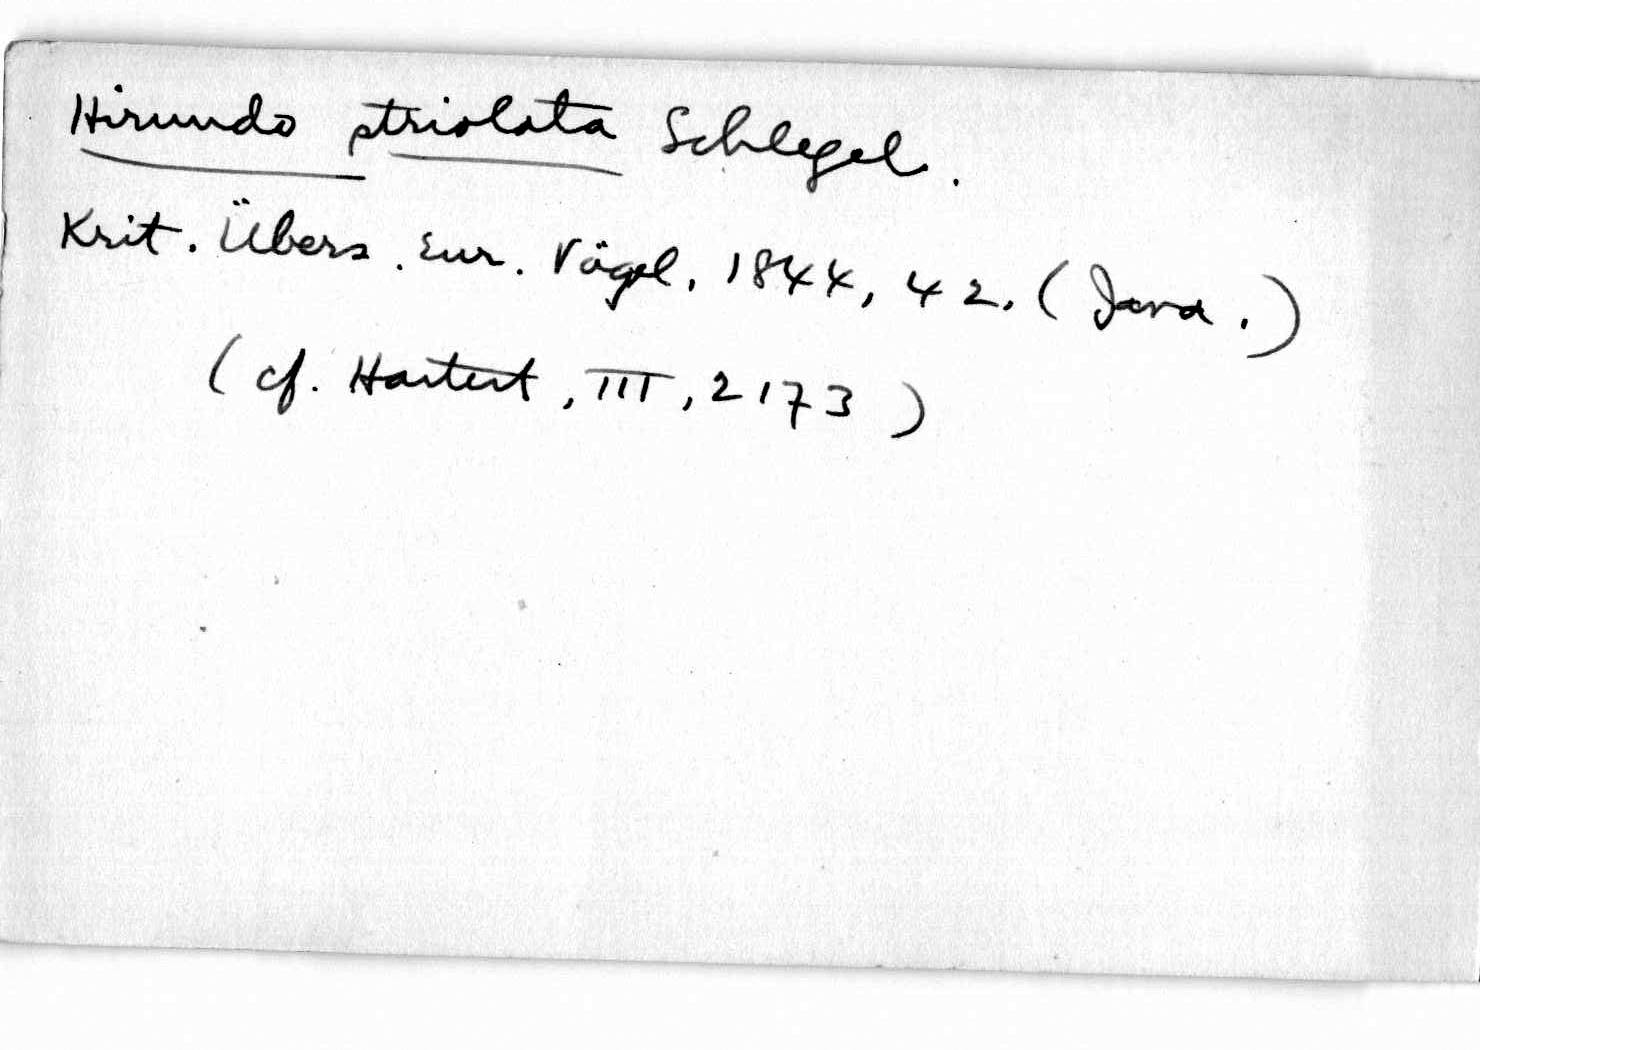 Hirundo striolata Schlegel.
Krit. Übers. Eur. Vögel, 1844, 42. (Java.)
(cf. Hartert, III, 2173)